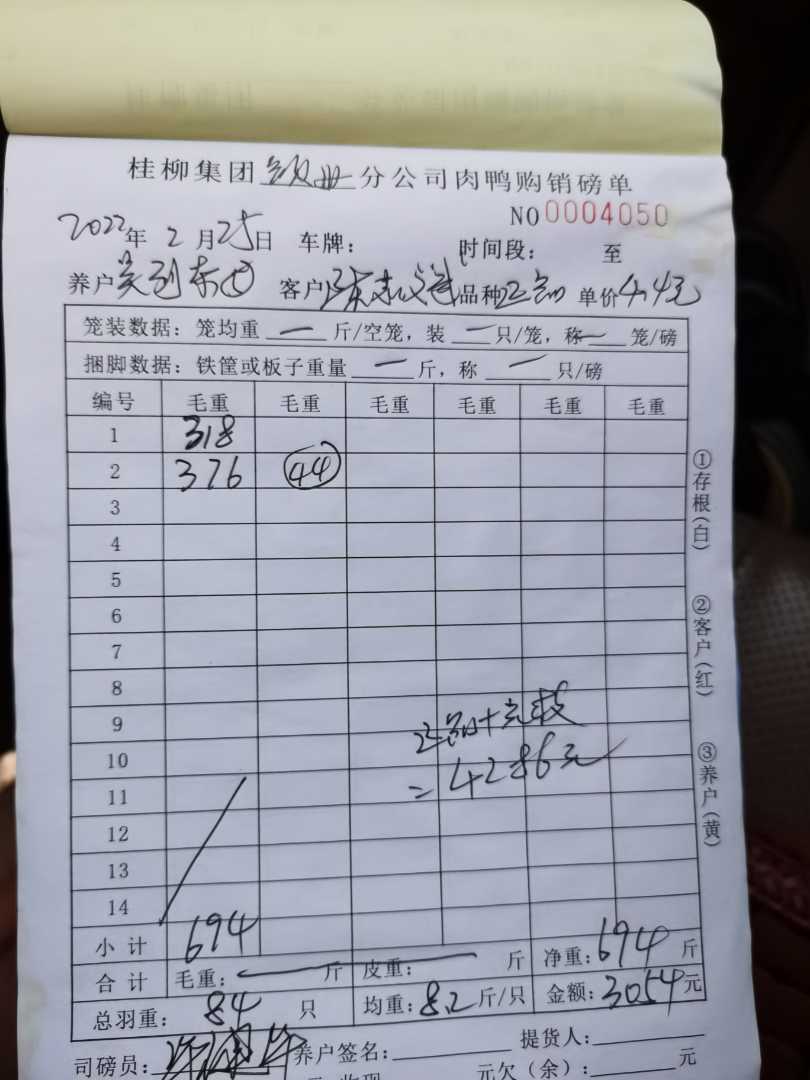 桂柳集团 分公司肉鸭购销磅单
NO 0004050
2022年 2月25日 车牌: 时间段: 至
养户 客户 品种 单价4.4元
笼装数据: 笼均重 — 斤/空笼, 装 — 只/笼, 称 — 笼/磅
捆脚数据: 铁筐或板子重量 — 斤, 称 — 只/磅
编号 毛重 毛重 毛重 毛重 毛重 毛重
1 318
2 376 44
3
4
5
6
7
8
9
10
=4286元
11
12
13
14
小计 694
合计 毛重: — 斤 皮重: 斤 净重: 694 斤
总羽重: 84 只 均重: 8.2 斤/只 金额: 3054 元
司磅员: 养户签名: 提货人:
元欠(余): 元
①存根(白)
②客户(红)
③养户(黄)